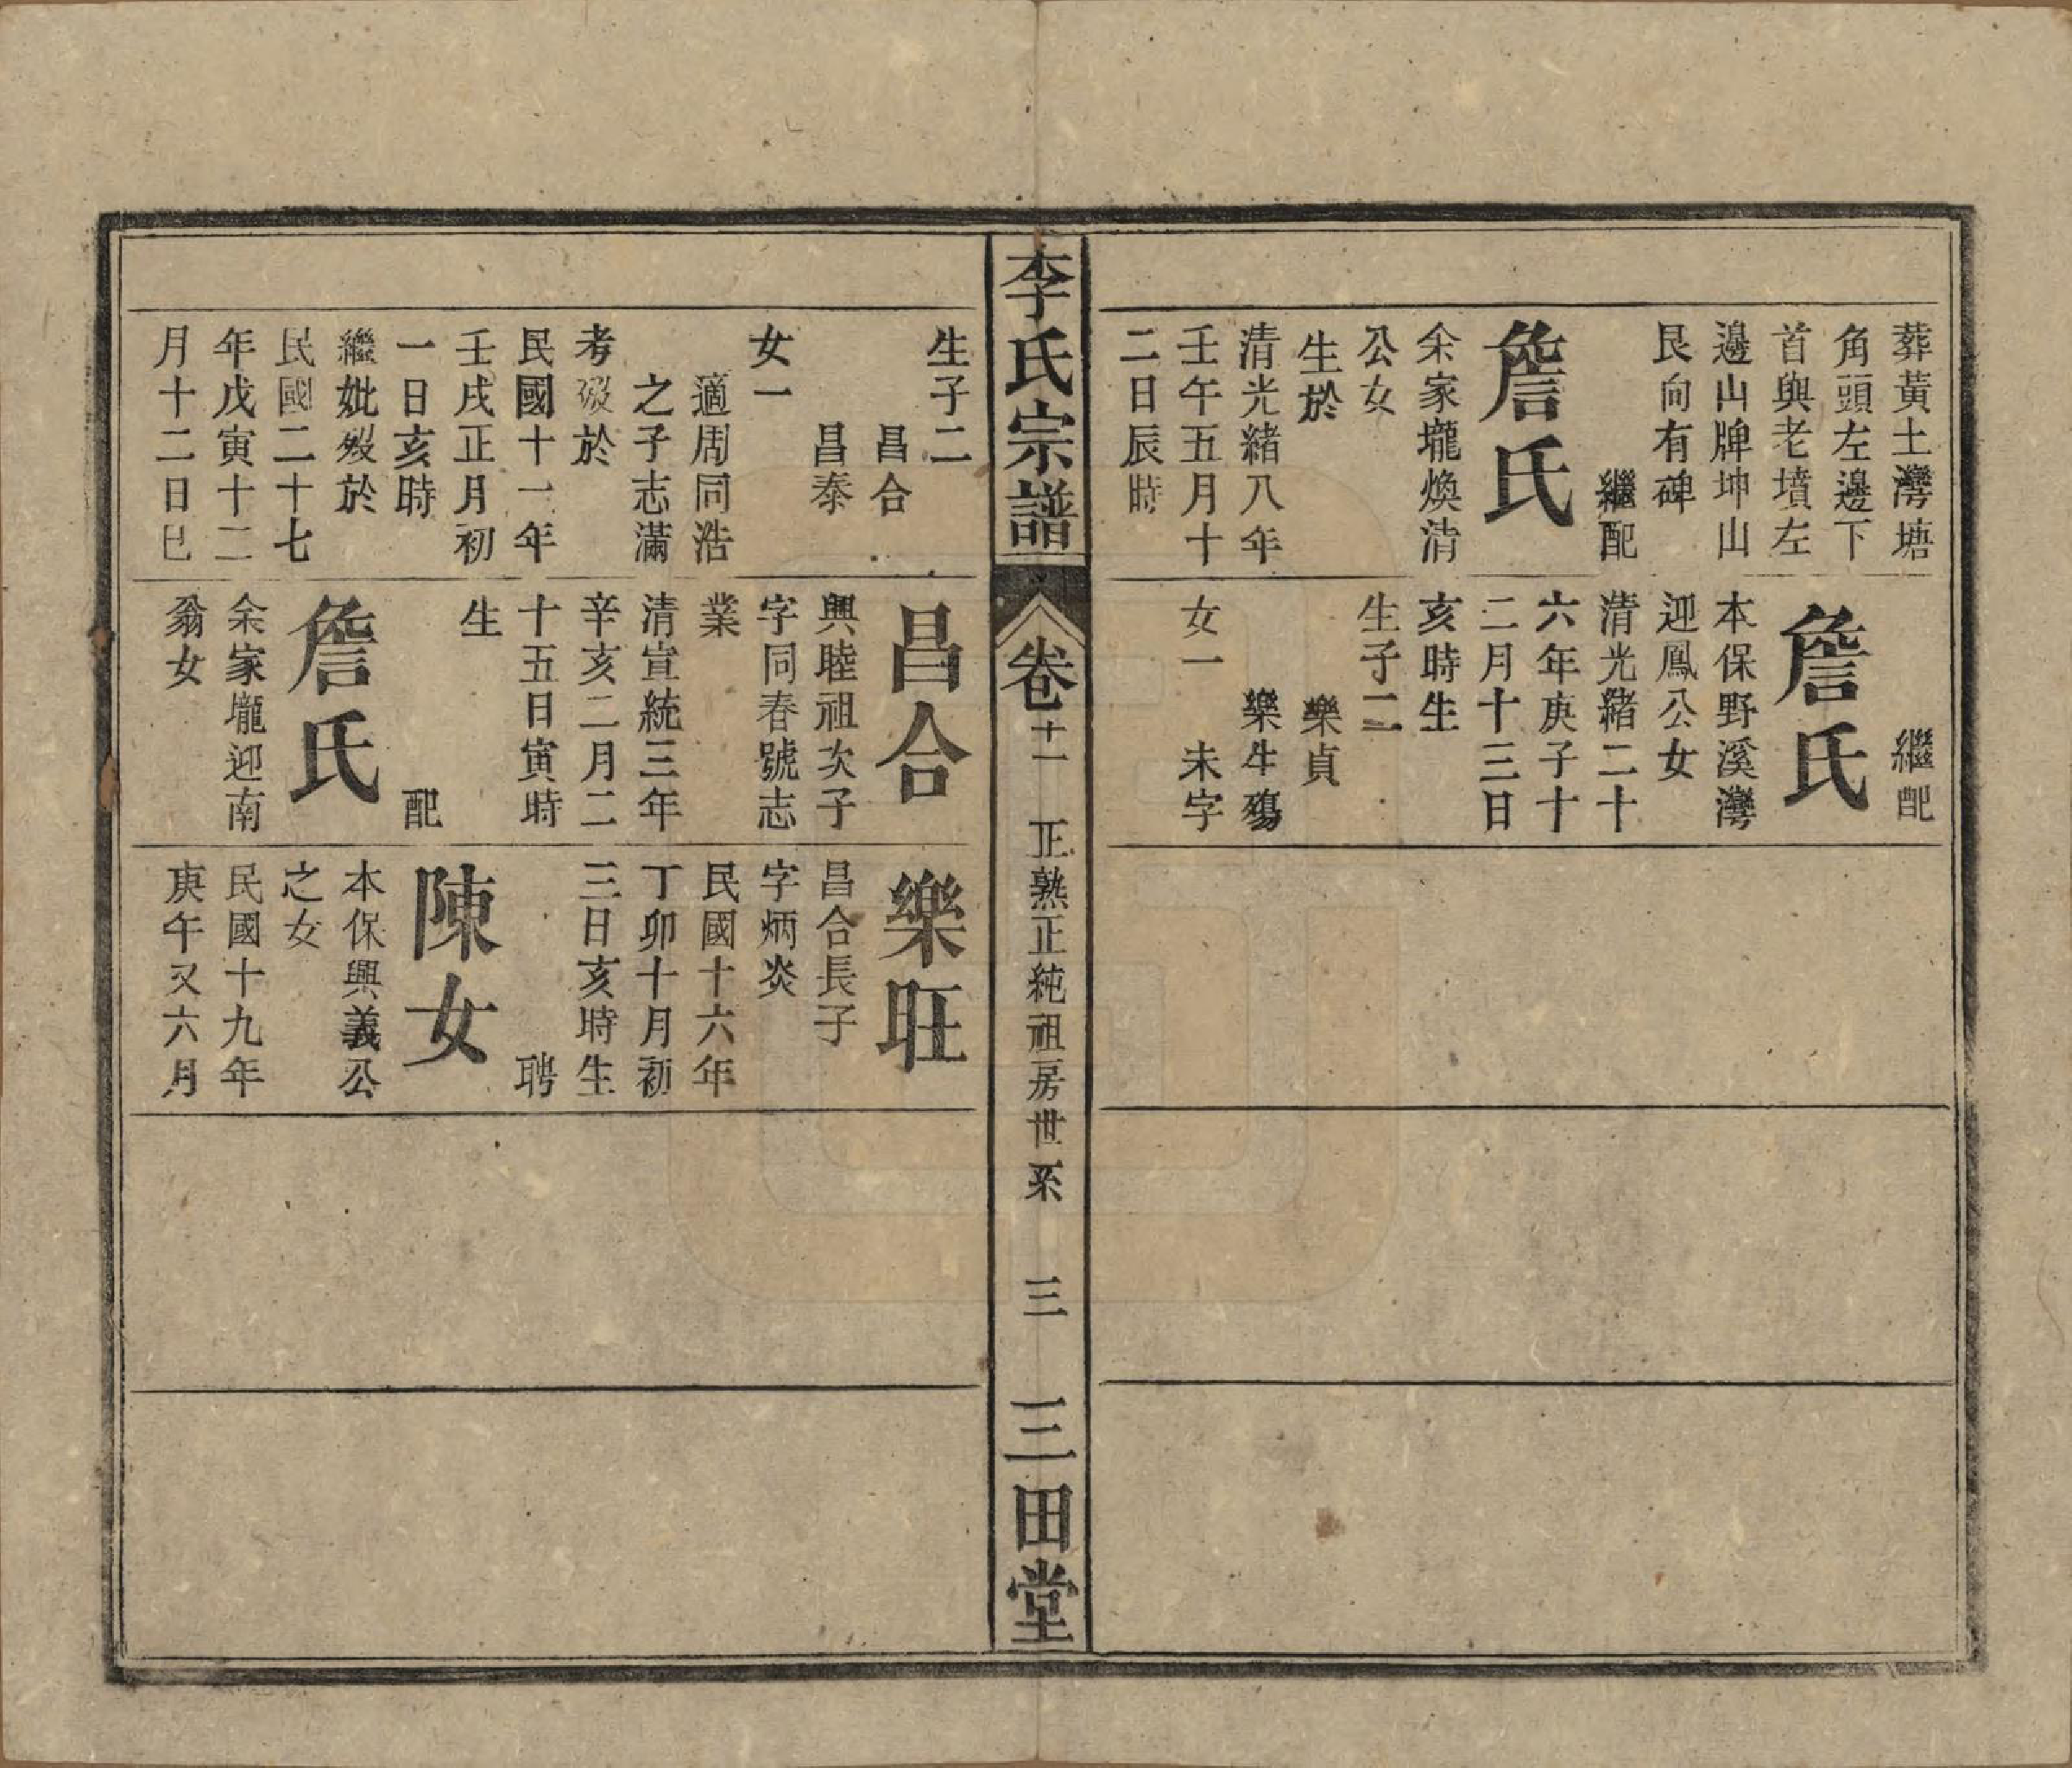 葬黃土灣塘
角頭左邊下
首與老墳左
邊山牌坤山
艮向有碑
繼配
詹氏
余家壠煥清
公女
生於
清光緒八年
壬午五月十
二日辰時
繼配
詹氏
本保野溪灣
迎鳳公女
清光緒二十
六年庚子十
二月十三日
亥時生
生子二
樂貞
樂牛殤
女一 未字
李氏宗譜
卷十一 正熟正純祖房世系 三 三田堂
生子二
昌合
昌泰
女一
適周同浩
之子志滿
考歿於
民國十一年
壬戌正月初
一日亥時
繼妣歿於
民國二十七
年戊寅十二
月十二日巳
昌合
興睦祖次子
字同春號志
業
清宣統三年
辛亥二月二
十五日寅時
生
配
詹氏
余家壠迎南
翁女
樂旺
昌合長子
字炳炎
民國十六年
丁卯十月初
三日亥時生
聘
陳女
本保興義公
之女
民國十九年
庚午又六月